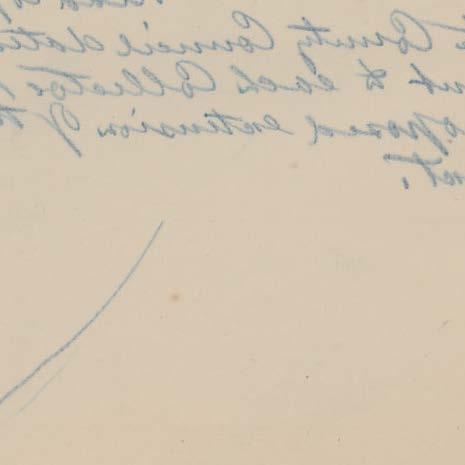 County Council date
to each Collector
oposed extension of t
ct.